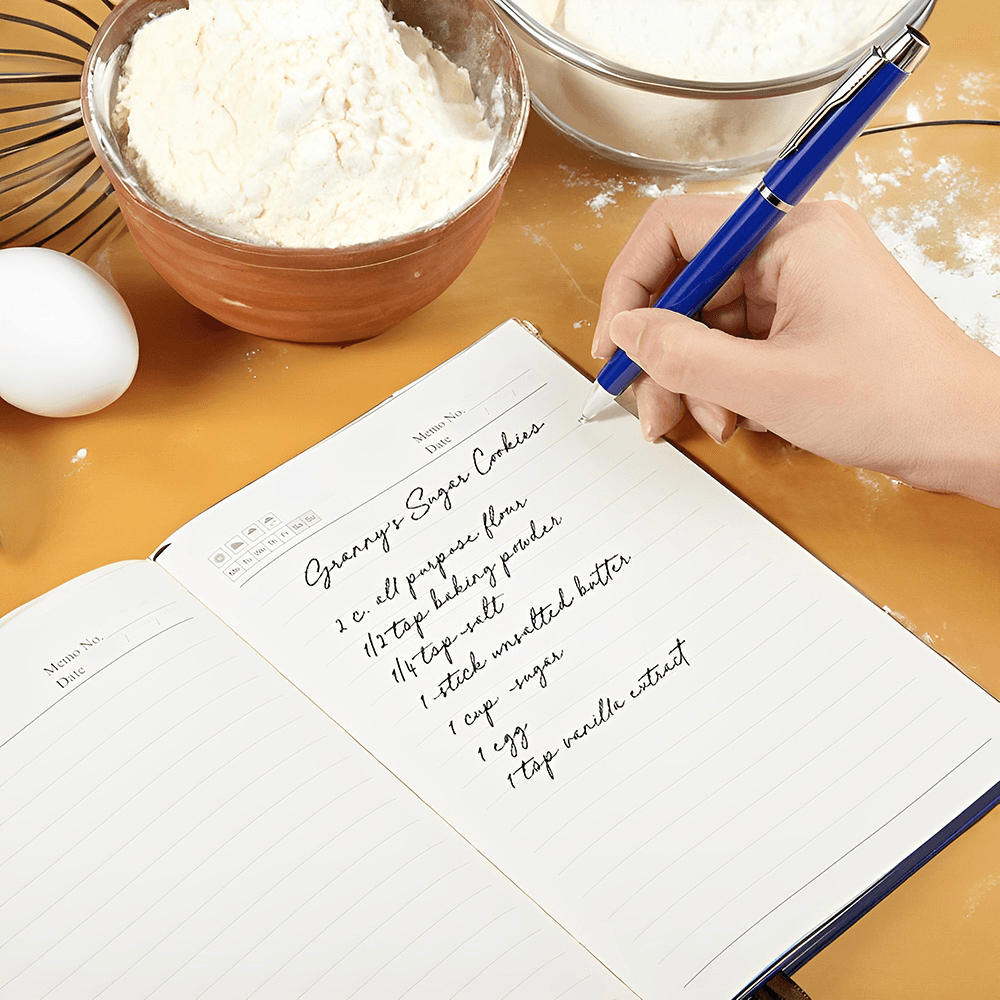 Memo No.
Date
Mo Tu We Th Fr Sa Su
Granny's Sugar Cookies
2 c. all purpose flour
1/2 tsp baking powder
1/4 tsp salt
1 stick unsalted butter
1 cup sugar
1 egg
1 tsp vanilla extract
Memo No.
Date